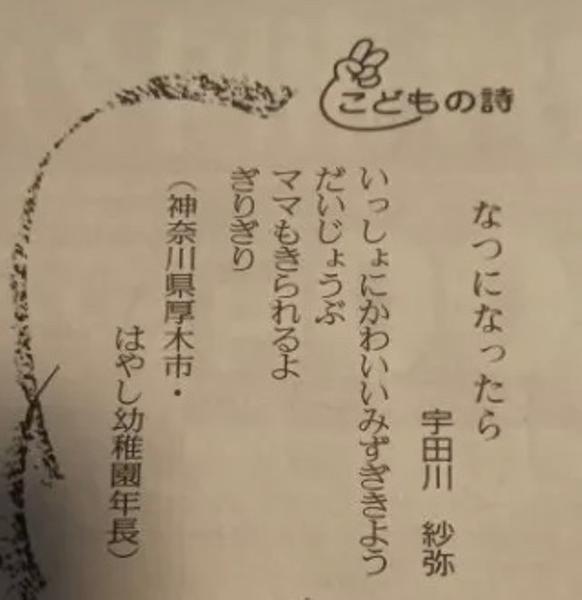 こどもの詩
なつになったら
宇田川 紗弥
いっしょにかわいいみずぎきよう
だいじょうぶ
ママもきられるよ
ぎりぎり
（神奈川県厚木市・
はやし幼稚園年長）